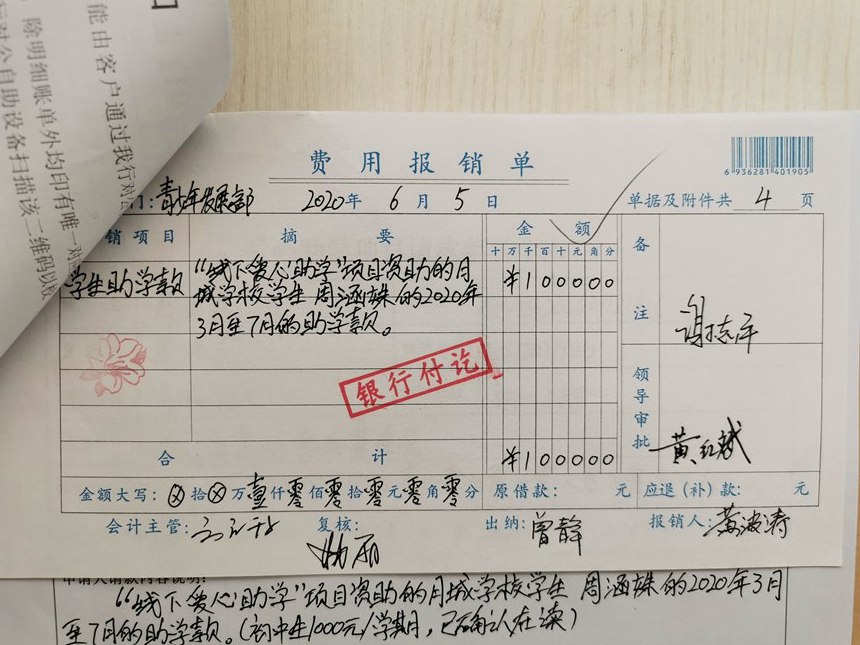 能由客户通过我行对
除明细账单外均印有唯一对
对公自助设备扫描该二维码以校
费用报销单
6 936281 401905
门：青少年发展部 2020年 6月 5日 单据及附件共 4 页
销项目 摘要 金额 备注
十万千百十元角分
学生助学款 “线下爱心助学”项目资助的月 ¥100000
城学校学生 周涵姝的2020年
3月至7月的助学款。
谢志平
银行付讫
领导审批
黄红斌
合计 ¥100000
金额大写：⊗拾⊗万壹仟零佰零拾零元零角零分 原借款： 元 应退（补）款： 元
会计主管： 复核： 出纳：曾静 报销人：黄波涛
申请人请款内容说明：
“线下爱心助学”项目资助的月城学校学生 周涵姝的2020年3月
至7月的助学款。（初中生1000元/学期，已确认在读）